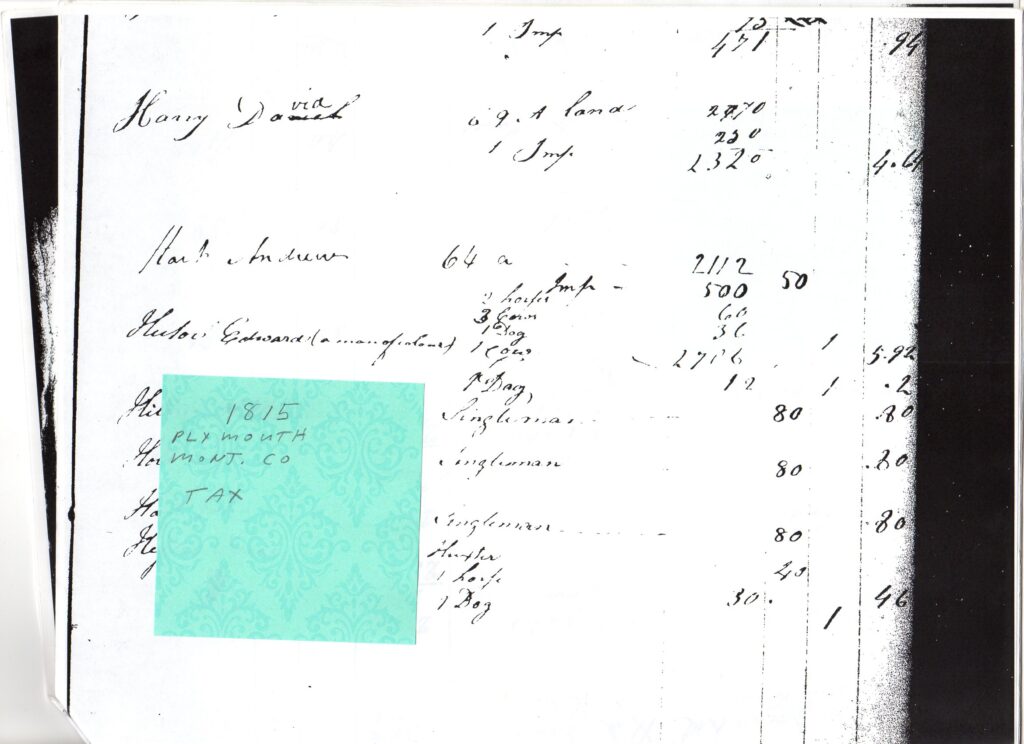 1 Imp 75
471 .94
Harry David 69 A land 2070
250
1 Imp 2320 4.64
Hart Andrew 64 a 2112
Imp - 500 50
2 horses 60
3 Cows 36
1 Dog 1
Edward (a man of colour) 1 Cow 2708 5.92
1 Dog 12 1 .2
Hi Singleman 80 .80
1815
PLYMOUTH
MONT. CO
Ho Singleman 80 .80
TAX
Ha Singleman 80 .80
He Huxter
1 horse 40
1 Dog 30 1 46